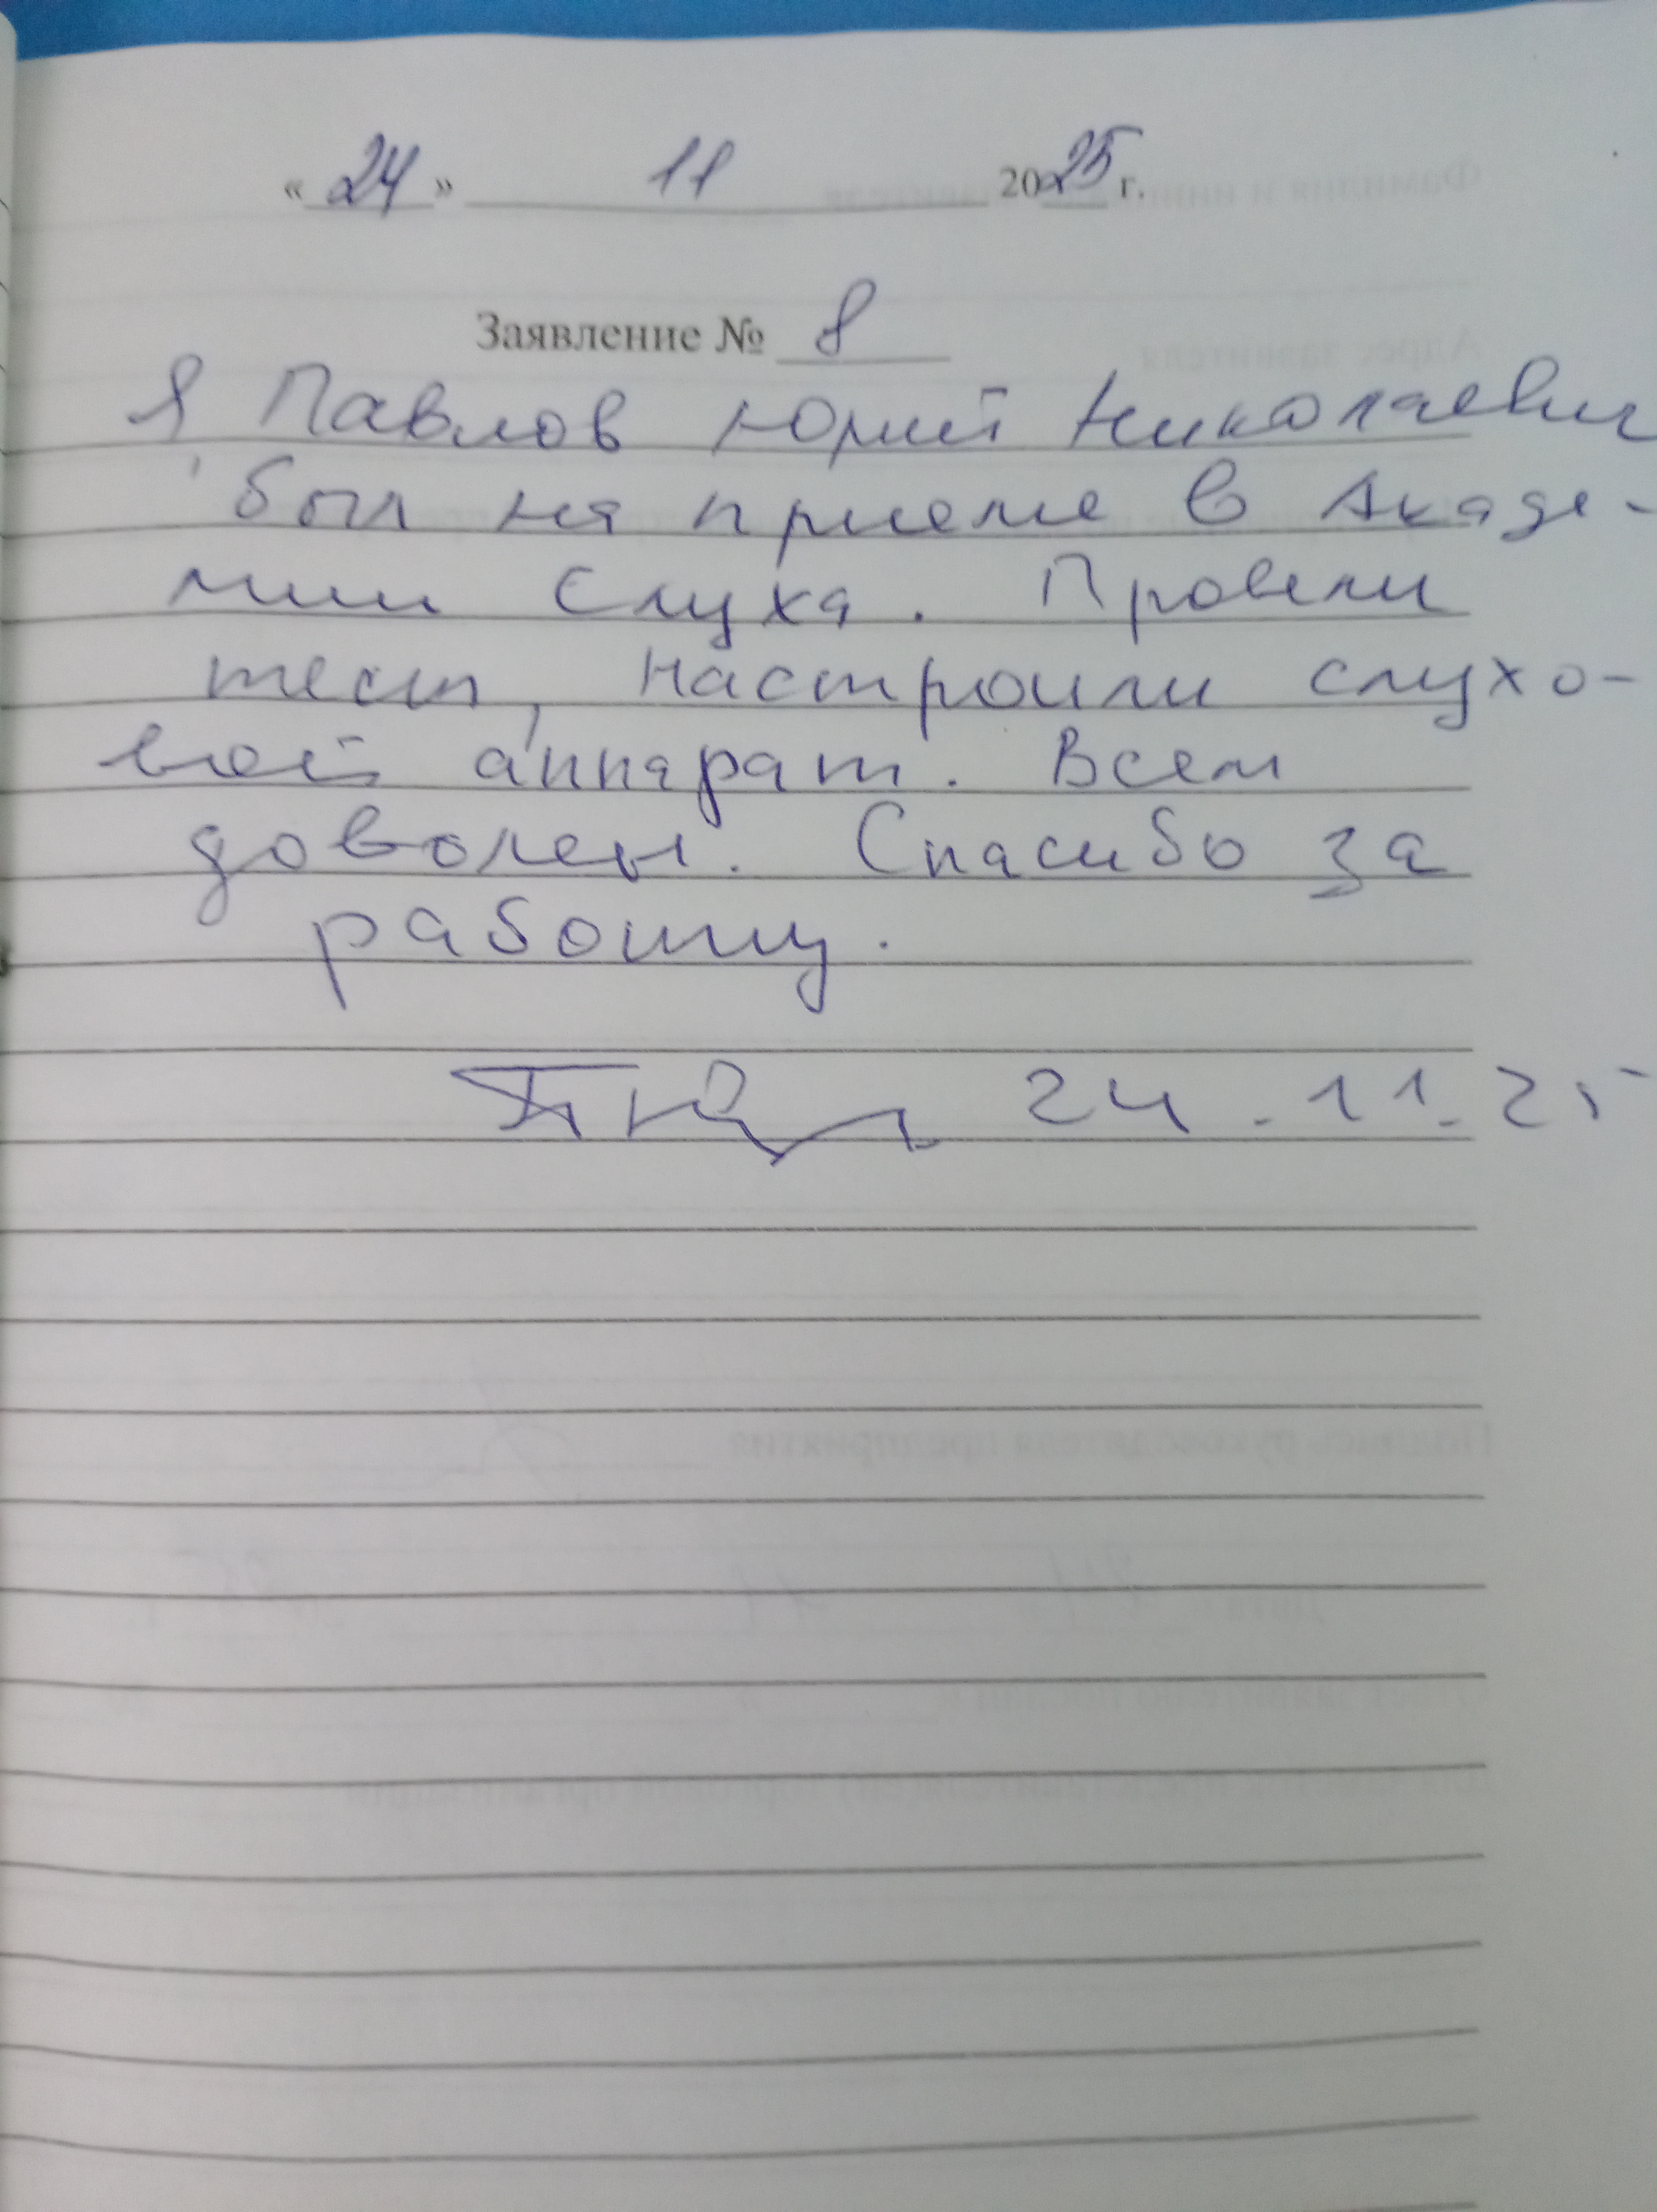 « 24 » 11 2025 г.
Заявление № 8
Я Павлов Юрий Николаевич
был на приеме в Акаде-
мии Слуха. Провели
тест, настроили слухо-
вой аппарат. Всем
доволен. Спасибо за
работу.
24.11.25